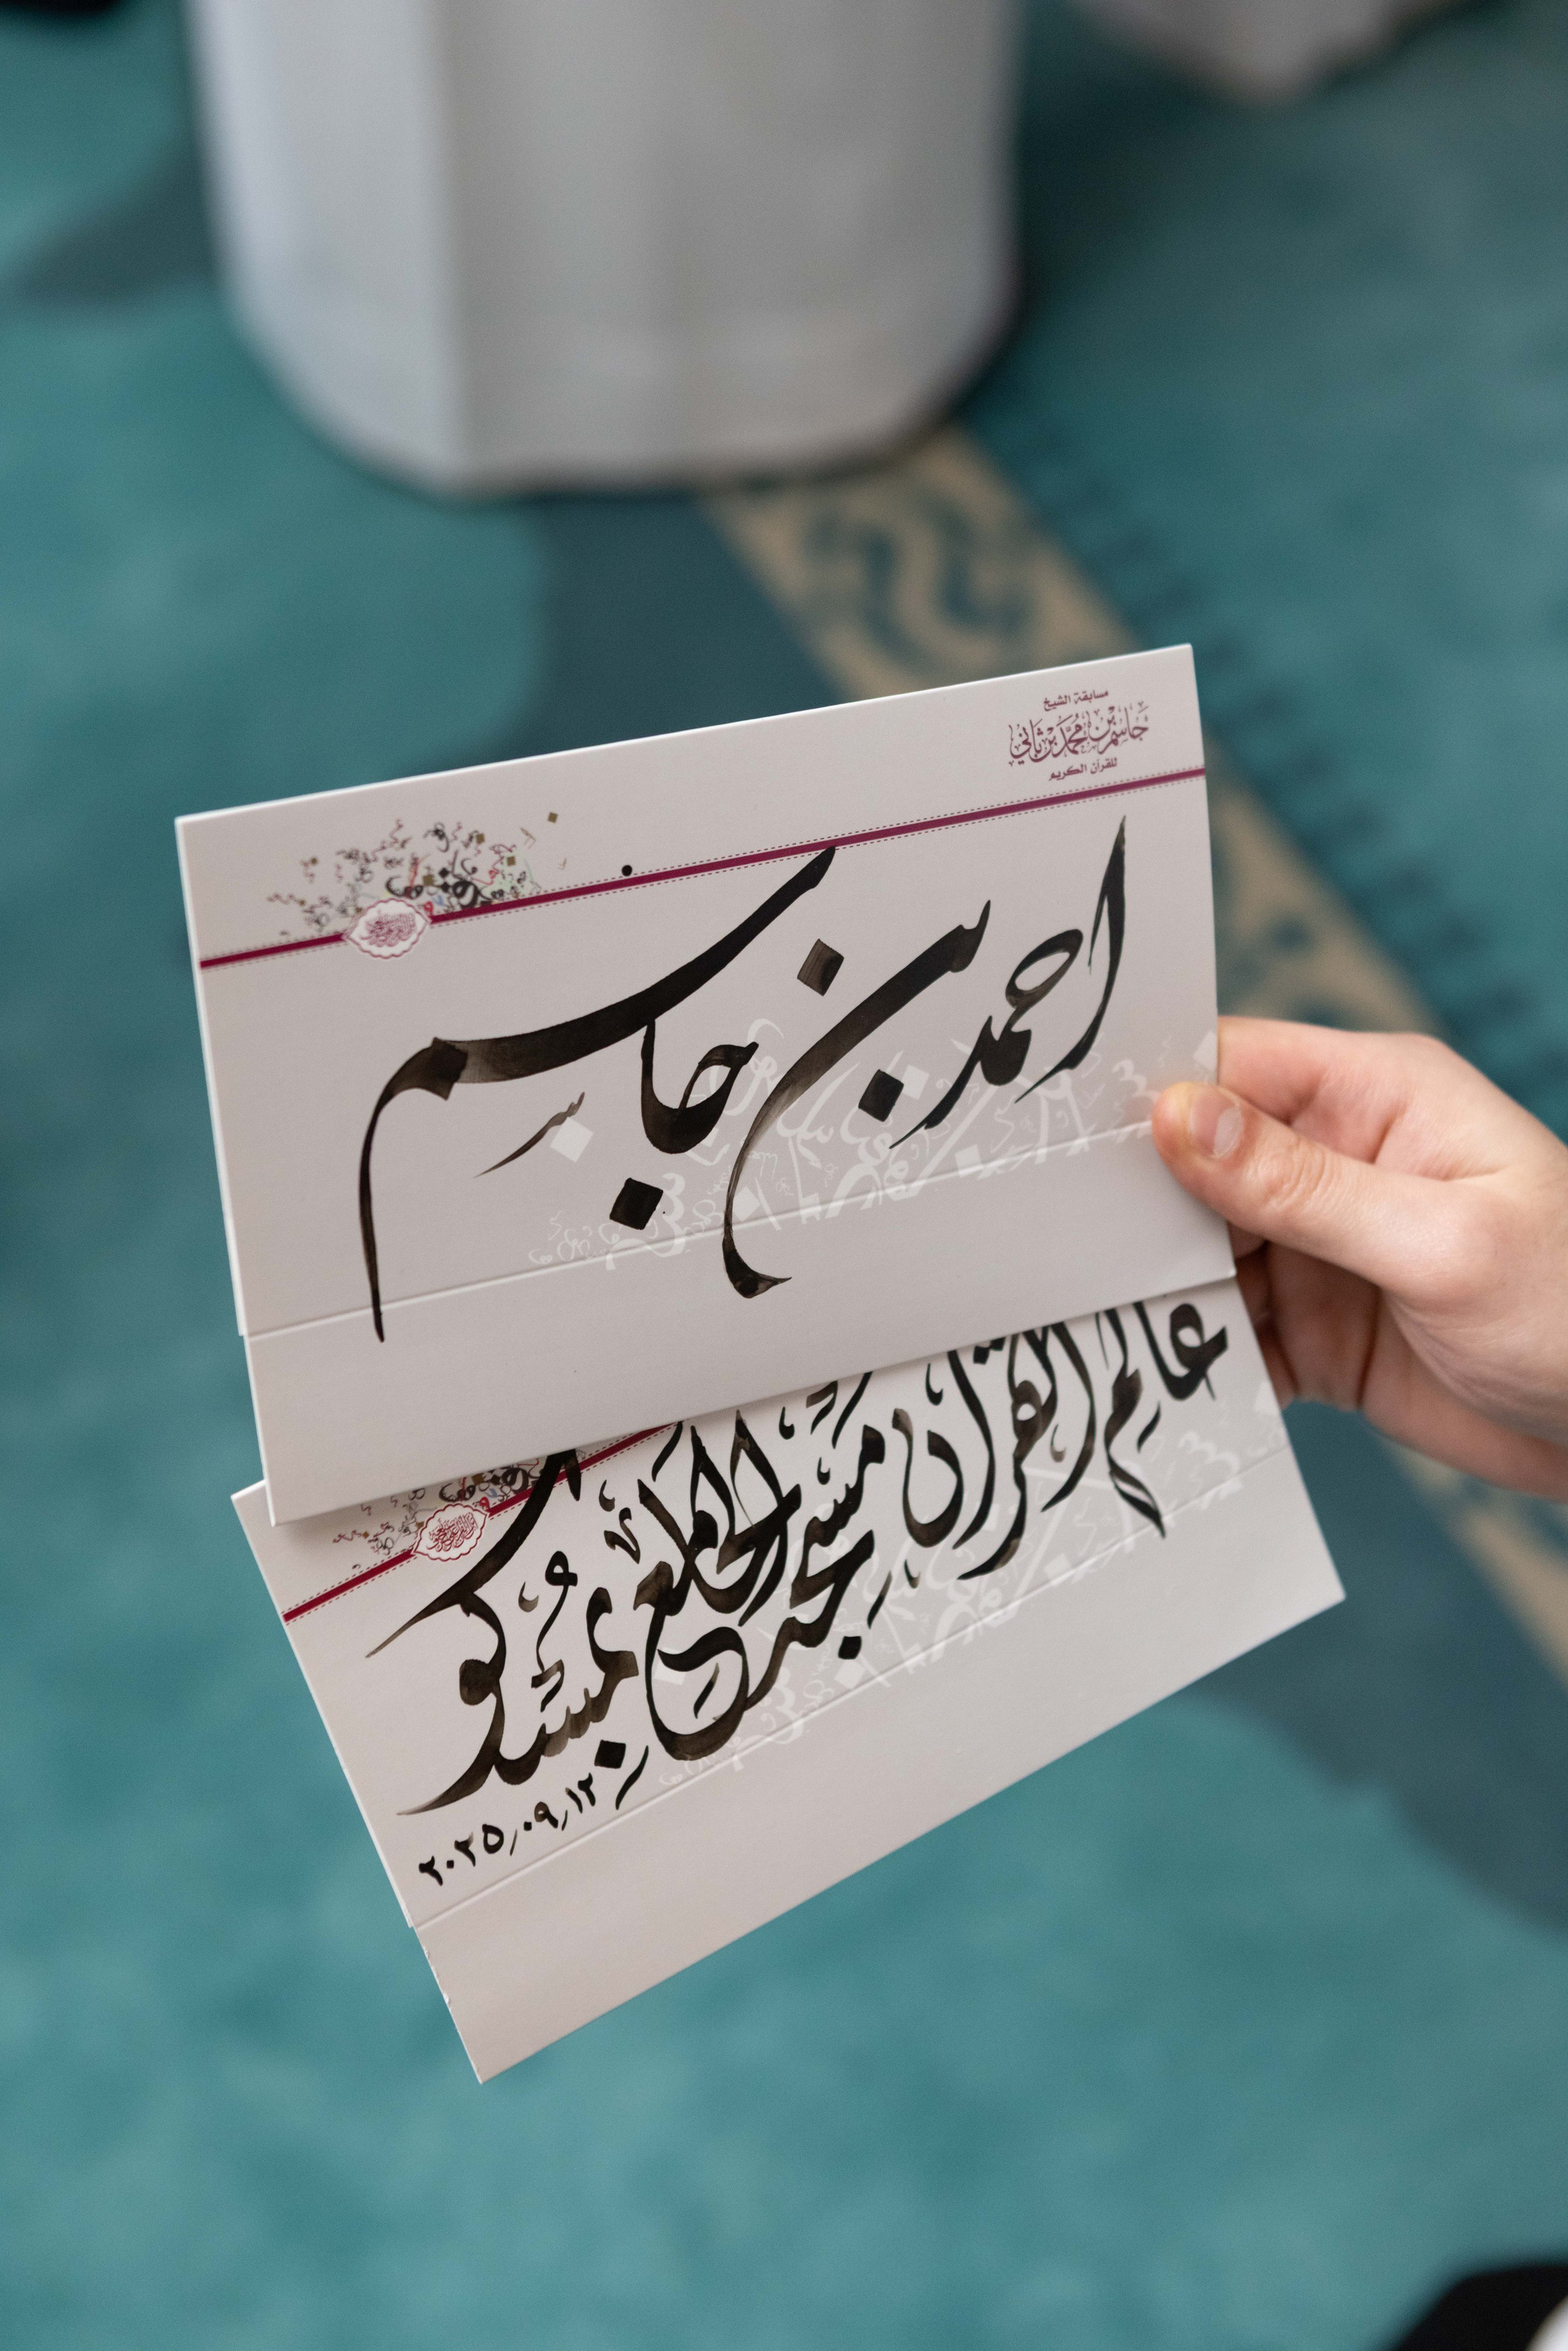 مسابقة الشيخ
جاسم بن محمد بن ثاني
للقرآن الكريم
احمد بن جاسم
عالم القرآن مسجد الجامع بمسكو
٢٠٢٥/٠٩/١٢